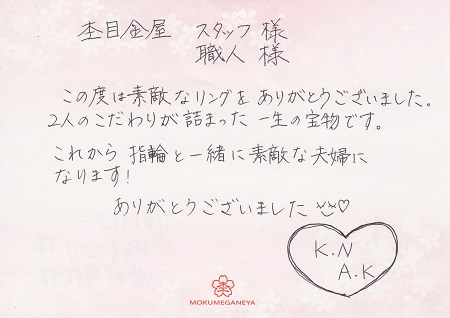 杢目金屋 スタッフ 様
職人 様
この度は素敵なリングを ありがとうございました。
2人のこだわりが詰まった 一生の宝物です。
これから 指輪と一緒に素敵な夫婦に
なります!
ありがとうございました ♡
K.N
A.K
MOKUMEGANEYA